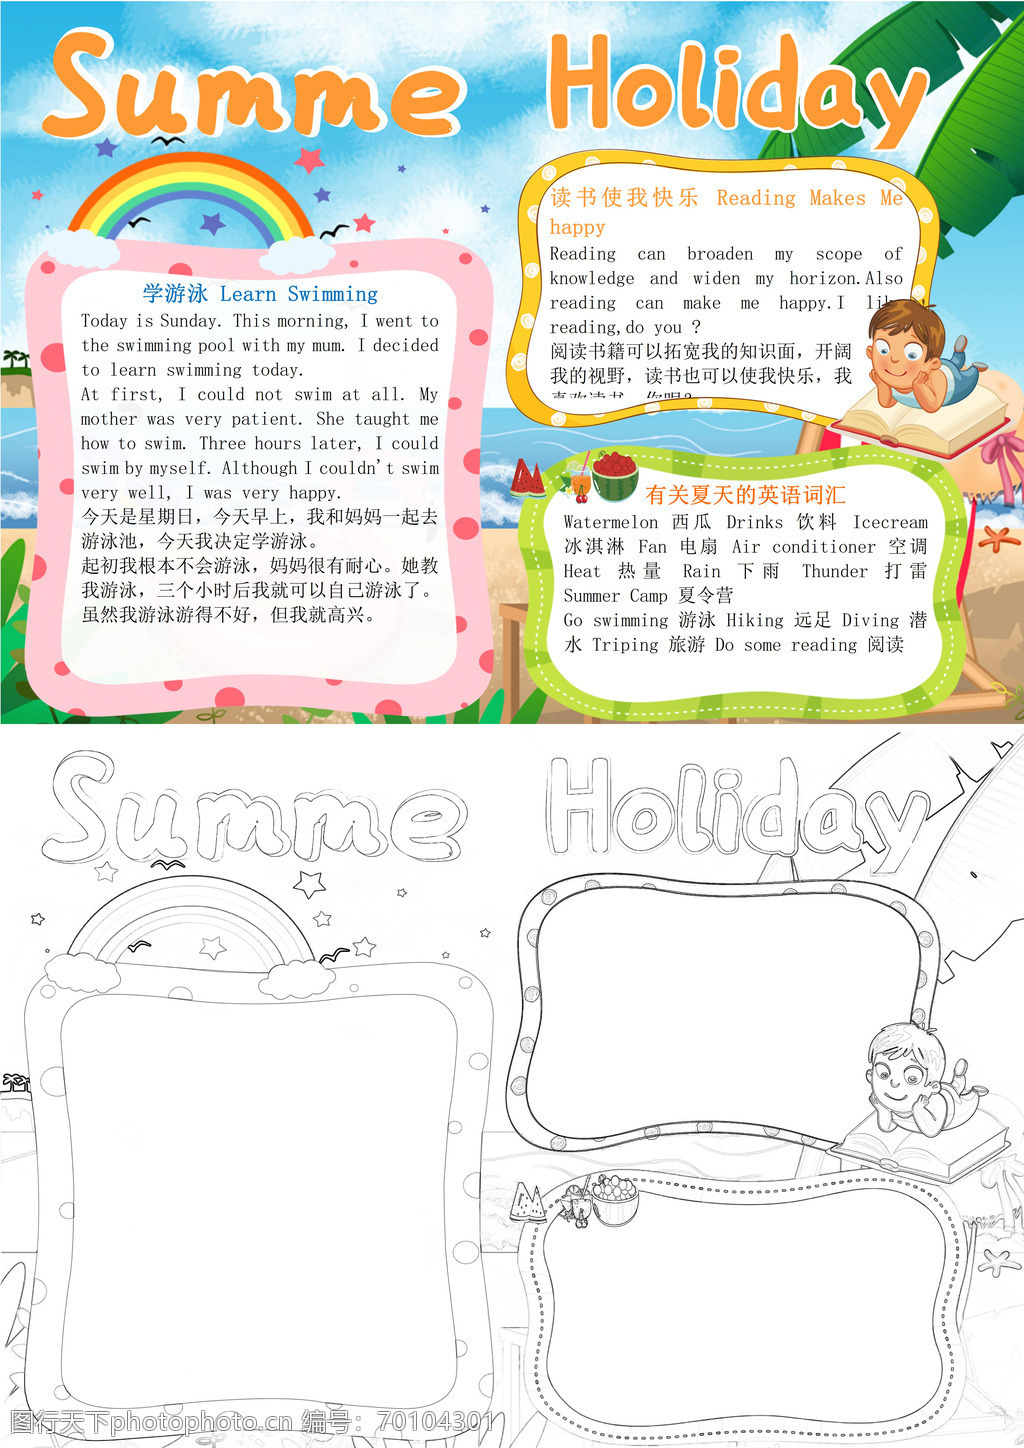 Summe Holiday
学游泳 Learn Swimming
Today is Sunday. This morning, I went to
the swimming pool with my mum. I decided
to learn swimming today.
At first, I could not swim at all. My
mother was very patient. She taught me
how to swim. Three hours later, I could
swim by myself. Although I couldn't swim
very well, I was very happy.
今天是星期日，今天早上，我和妈妈一起去
游泳池，今天我决定学游泳。
起初我根本不会游泳，妈妈很有耐心。她教
我游泳，三个小时后我就可以自己游泳了。
虽然我游泳游得不好，但我就高兴。
读书使我快乐 Reading Makes Me
happy
Reading can broaden my scope of
knowledge and widen my horizon.Also
reading can make me happy.I
reading,do you ?
阅读书籍可以拓宽我的知识面，开阔
我的视野，读书也可以使我快乐，我
有关夏天的英语词汇
Watermelon 西瓜 Drinks 饮料 Icecream
冰淇淋 Fan 电扇 Air conditioner 空调
Heat 热量 Rain 下雨 Thunder 打雷
Summer Camp 夏令营
Go swimming 游泳 Hiking 远足 Diving 潜
水 Triping 旅游 Do some reading 阅读
Summe Holiday
图行天下photophoto.cn 编号：70104301